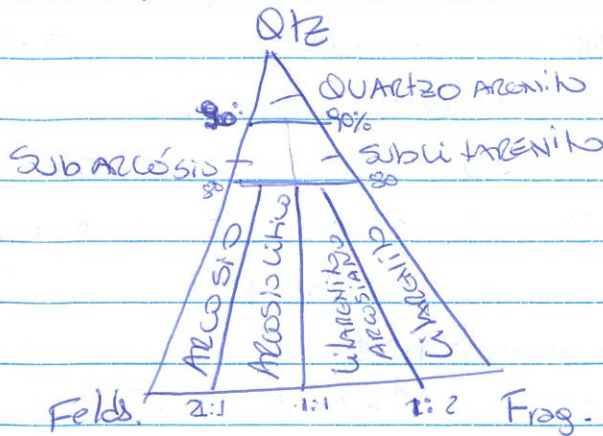 Qtz
QUARTZO ARENITO
90% 90%
SUB ARCÓSIO SUBLITARENITO
80 80
ARCOSIO
ARCOSIO LÍTICO
LITARENITO
ARCOSIANO
LITARENITO
Felds. 2:1 1:1 1:2 Frag.